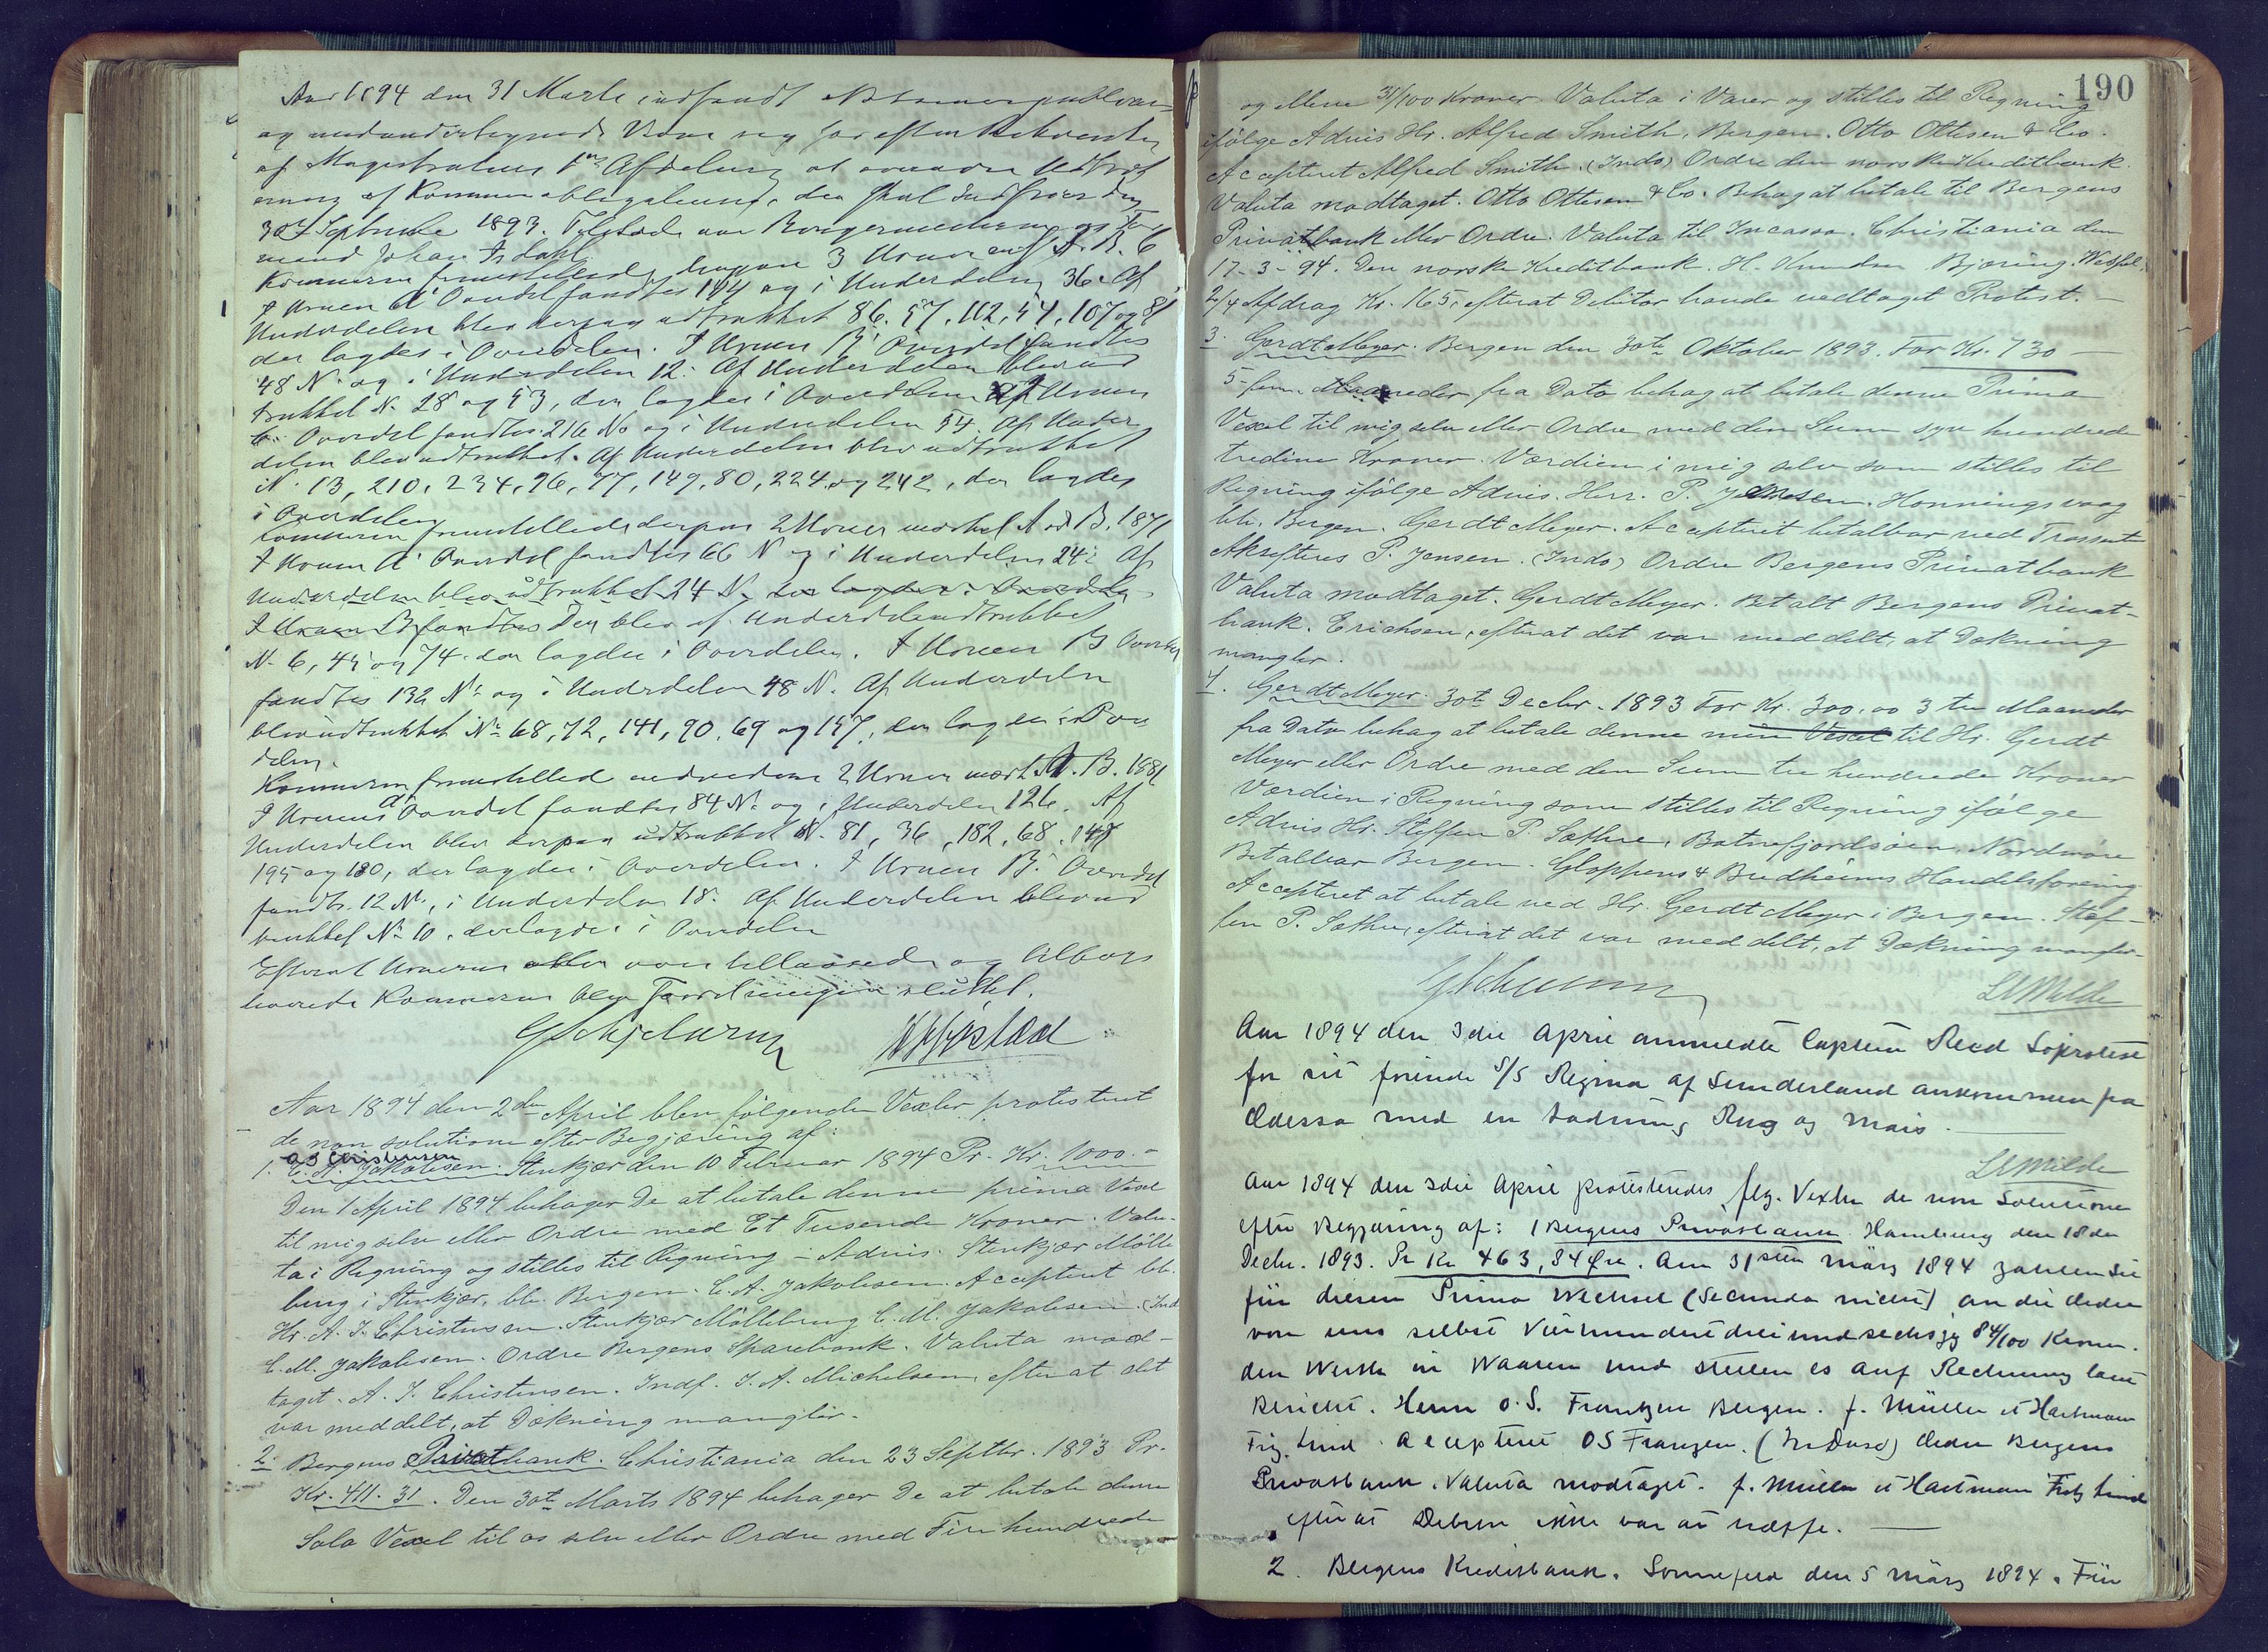 Aar 1894 den 31 Marts indfandt Notarius publicus
og medundertegnede Vidne sig for efter Rekvisition
af Magistratens 1ste Afdeling at overvære Udtræk
ning af Kommuneobligationer, der skal Indfries den
30te September 1893. Tilstede var Borgermesteren og
mand Johan Isdahl.
Kæmneren fremstillede derpaa 3 Urner A. B. C
I Urnen A Overdel fandtes 144 og i Underdelen 36. Af
Underdelen blev derpaa udtrukket 86, 57, 112, 54, 107 og 81
der lagdes i Overdelen. I Urnen B Overdel fandtes
48 No og i Underdelen 12. Af Underdelen blev ud
trukket No 28 og 53, der lagdes i Overdelen. Af Urnen
C Overdel fandtes 216 No og i Underdelen 54. Af Under
delen blev udtrukket. Af Underdelen blev udtrukket
No 13, 210, 234, 96, 77, 149, 80, 224 og 242, der lagdes
i Overdelen
Kæmneren fremstillede derpaa 2 Urner mærket A og B. 1871
I Urnen A Overdel fandtes 66 No og i Underdelen 24. Af
Underdelen blev udtrukket 24 No der lagdes i Overdelen
I Urnen B fandtes Der blev af Underdelen udtrukket
No 6, 45 og 74 der lagdes i Overdelen. I Urnen B Overdel
fandtes 132 No og i Underdelen 48 No. Af Underdelen
blev udtrukket No 68, 72, 141, 90, 69 og 157, der lagdes i Over
delen.
Kæmneren fremstilled endvidere 2 Urner mærket A. B. 1881
I Urnens A Overdel fandtes 84 No og i Underdelen 126. Af
Underdelen blev derpaa udtrukket No 81, 36, 182, 68, 148
195 og 180, der lagdes i Overdelen. I Urnen B Overdel
fandtes 12 No, i Underdelen 18. Af Underdelen blev ud
trukket No 10, der lagdes i Overdelen
Efterat Urnerne atter var tillaasede og tilbage
leverede Kæmneren blev Forretningen sluttet.
Aar 1894 den 2den April blev følgende Vexler protesteret
de non solutione efter Begjæring af:
A J Christensen
1. C. M. Jakobsen. Stenkjær den 10 Februar 1894 Pr. Kr. 1000.-
Den 1 April 1894 behager De at betale denne prima Vexel
til mig selv eller Ordre med Et Tusende Kroner. Valu-
ta i Regning og stilles til Regning - Advis. Stenkjær Mølle
brug i Stenkjær, bli. Bergen. C. A. Jakobsen. Accepteret bli.
Hr. A. J. Christensen. Stenkjær Møllebrug C. M. Jakobsen. (Ind
C. M. Jakobsen. Ordre Bergens Sparebank. Valuta mod-
taget. A. J. Christensen. Indf. J. A. Michelsen, efterat det
var meddelt, at Dækning mangler.
2. Bergens Privatbank. Christiania den 23 Septbr. 1893 Pr.
Kr. 411.31. Den 30te Marts 1894 behager De at betale denne
Sola Vexel til os selv eller Ordre med Fire hundrede
190
og elleve 31/100 Kroner. Valuta i Varer og stilles til Regning
ifølge Advis Hr. Alfred Smith, Bergen. Otto Ottesen & Co.
Accepteret Alfred Smith. (Indo) Ordre den norske Kreditbank.
Valuta modtaget. Otto Ottesen & Co. Behag at betale til Bergens
Privatbank eller Ordre. Valuta til Incasso. Christiania den
17-3-94. Den norske Kreditbank. H. Knudsen Bjøring.
2/4 Afdrag Kr. 165, efterat Debitor havde vedtaget Protest.-
3. Gerdt Meyer. Bergen den 30te Oktober 1893. For Kr. 730 -
5-fem Maaneder fra Dato behag at betale denne Prima
Vexel til mig selv eller Ordre med den Sum syv hundrede
tredive Kroner. Værdien i mig selv som stilles til
Regning ifølge Advis. Herr. P. Jensen. Honningsvaag
bli. Bergen. Gerdt Meyer. Accepteret betalbar ved Trassent
Aksepteres P. Jensen. (Indo) Ordre Bergens Privatbank
Valuta modtaget. Gerdt Meyer. Betalt Bergens Privat-
bank. Erichsen, efterat det var meddelt, at Dækning
mangler.
4. Gerdt Meyer. 30te Decbr. 1893 For Kr. 300.00 3 tre Maaneder
fra Dato behag at betale denne min Vexel til Hr. Gerdt
Meyer eller Ordre med den Sum tre hundrede Kroner
Værdien i Regning som stilles til Regning ifølge
Advis Hr. Steffen P. Sæthre, Batnefjordsøren, Nordmøre
Betalbar Bergen. Gloppens & Bredheims Handelsforening.
Accepteret at betale ved Hr. Gerdt Meyer i Bergen. Stef-
fen P. Sæthre, efterat det var meddelt, at Dækning mangler.
LMilde
Aar 1894 den 3die April anmeldte Captein Reed Søprotest
for sit førende S/S Regina af Sunderland ankommen fra
Odessa med en Ladning Rug og Mais.
LMilde
Aar 1894 den 3die April protesteredes flg. Vexler de non Solutione
efter Begjæring af: 1 Bergens Privatbank. Hamburg den 18den
Decbr. 1893. Pr Kr 463,84 Øre. Am 31sten März 1894 zahlen Sie
für diesen Prima Wechsel (Secunda nicht) an die Ordre
von uns selbst Vierhundert dreiundsechszig 84/100 Kronen.
den Werth in Waaren und stellen es auf Rechnung laut
Bericht. Herrn O. S. Frantzen Bergen. J. Müller et Hartmann
Fritz Lind. Accepteret OS Franzen. (Indosd) Ordre Bergens
Privatbank. Valuta modtaget. J. Müller et Hartman Fritz Lind
efterat Debitor ikke var at træffe.
2. Bergens Kreditbank. Sonnefeld den 5 März 1894. Für